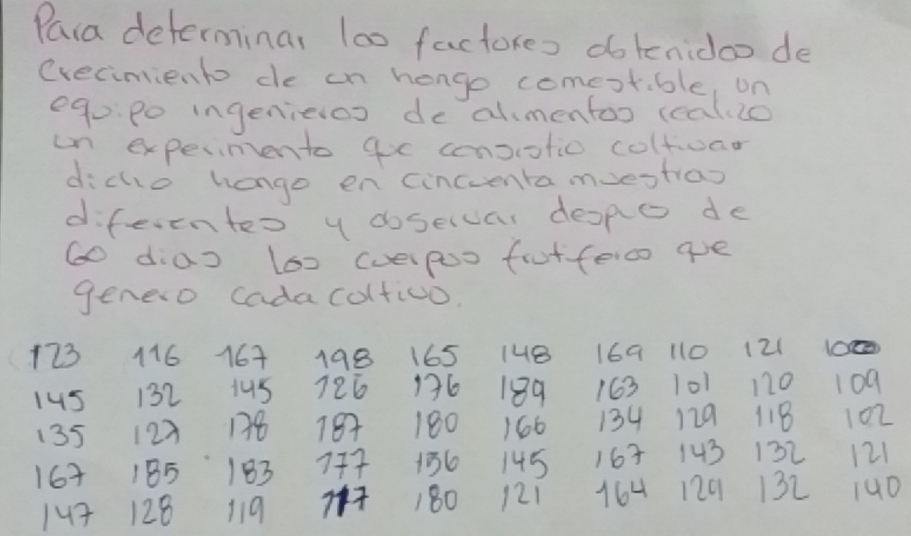 Para determinar los factores obtenidos de
crecimiento de un hongo comestible, un
equipo ingenieros de alimentos realizo
un experimento que consistio coltivar
dicho hongo en cincuenta muestras
diferentes y observar despues de
60 dias los cuerpos frutifeico que
genero cada coltivo.
123 116 167 198 165 148 169 110 121
145 132 145 126 176 189 163 101 120 109
135 127 178 187 180 166 134 129 118 102
167 185 183 177 136 145 167 143 132 121
147 128 119 180 121 164 129 132 140